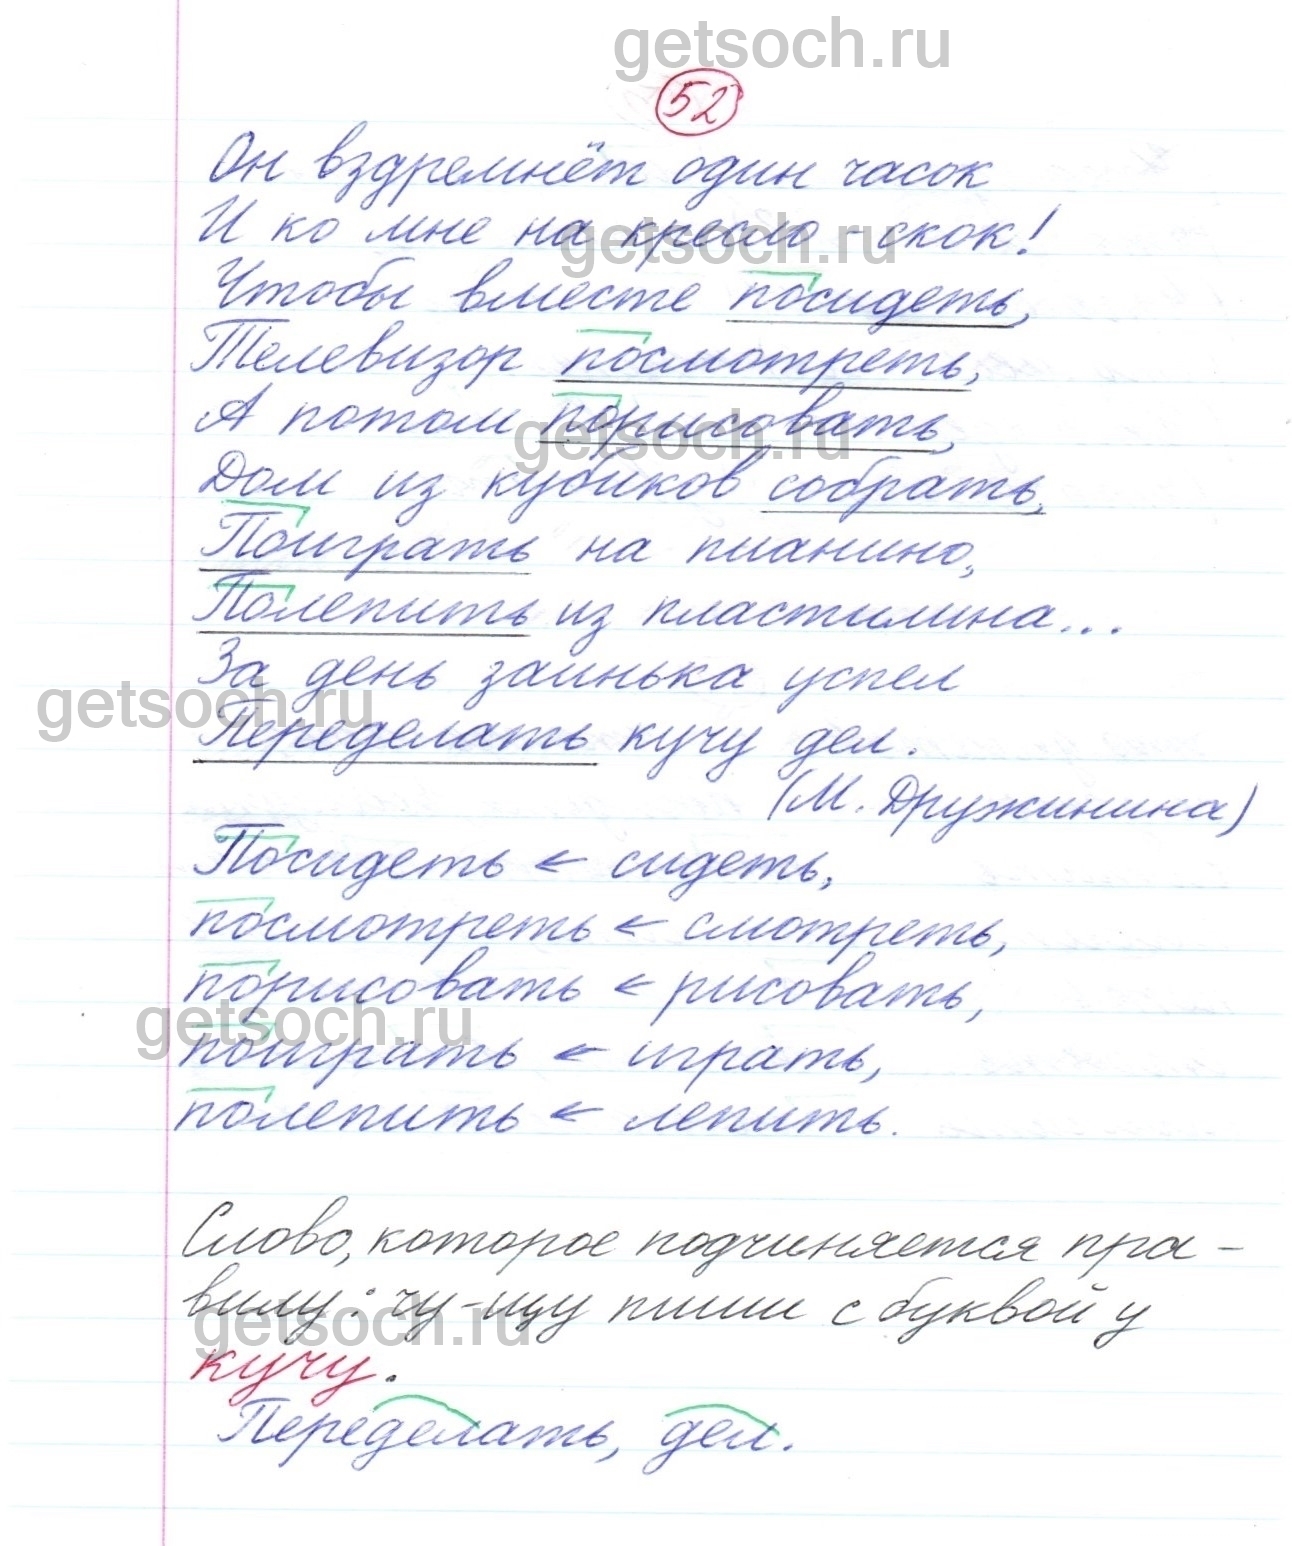 getsoch.ru
52
Он вздремнёт один часок
И ко мне на кресло - скок!
getsoch.ru
Чтобы вместе посидеть,
Телевизор посмотреть,
А потом порисовать,
getsoch.ru
Дом из кубиков собрать,
Поиграть на пианино,
Полепить из пластилина...
За день заинька успел
getsoch.ru
Переделать кучу дел.
(М. Дружинина)
Посидеть ← сидеть,
посмотреть ← смотреть,
порисовать ← рисовать,
getsoch.ru
поиграть ← играть,
полепить ← лепить.
Слово, которое подчиняется пра-
вилу: чу-щу пиши с буквой у
getsoch.ru
кучу.
Переделать, дел.